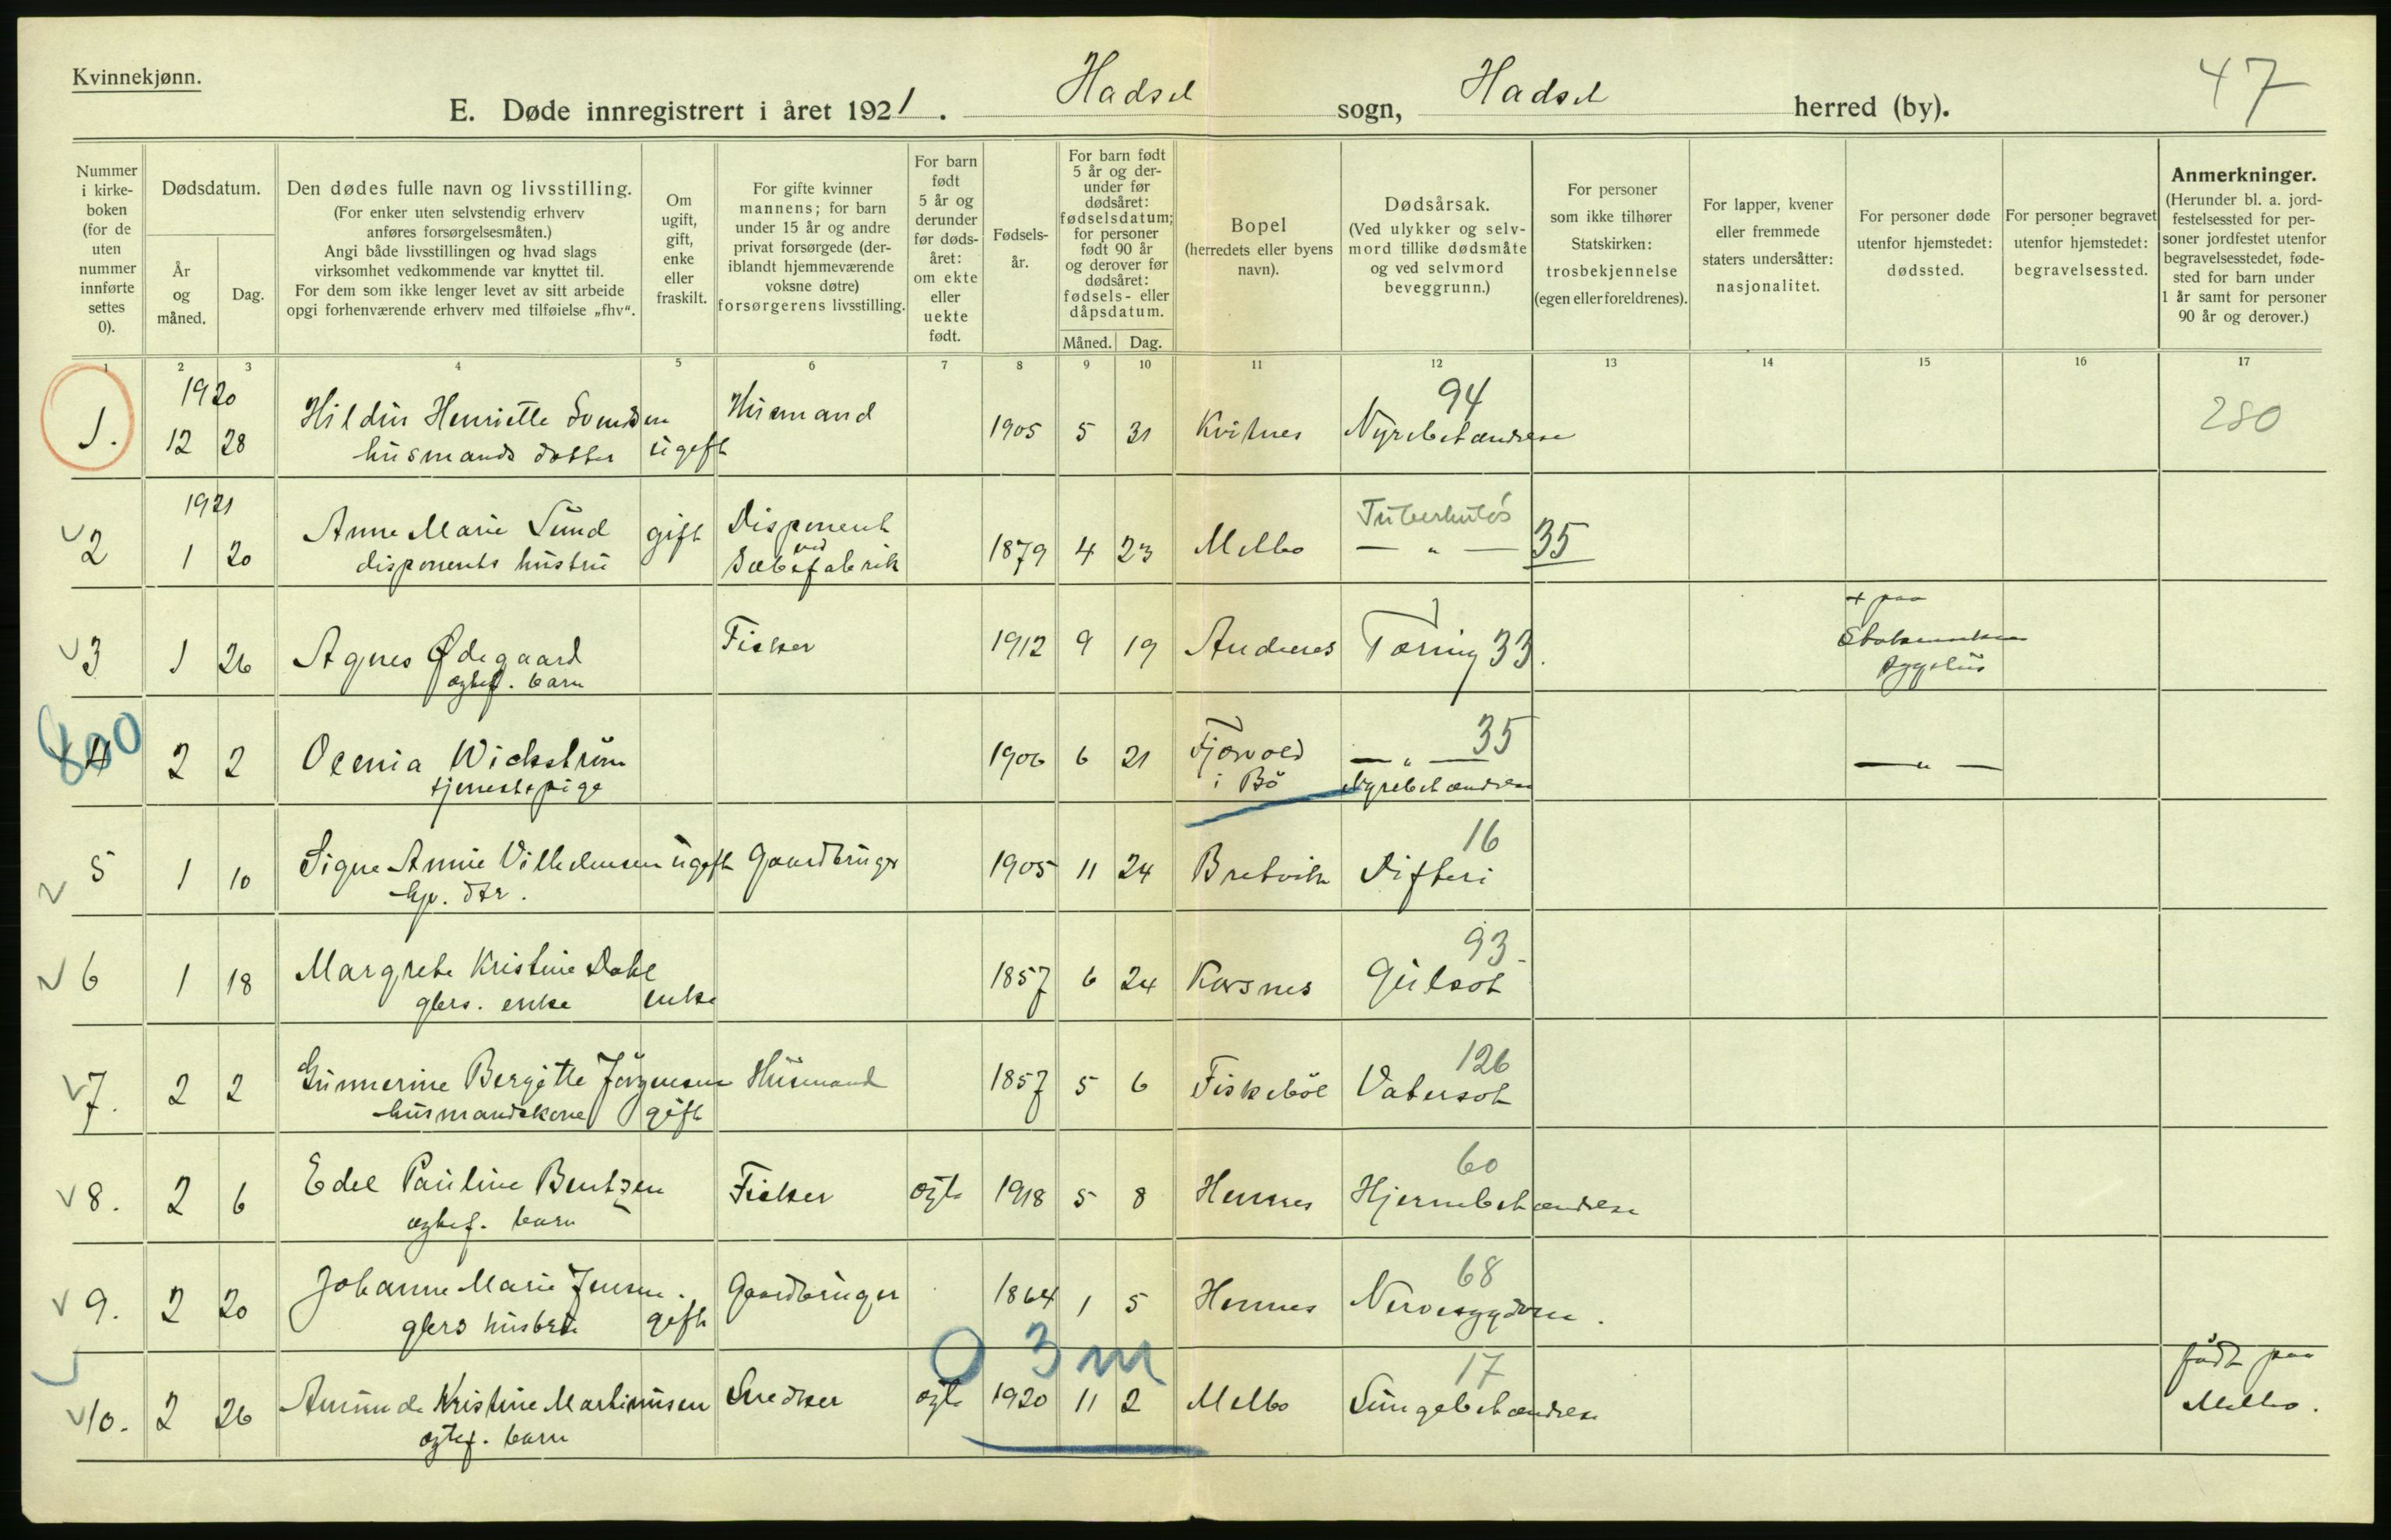 Kvinnekjønn.
E. Døde innregistrert i året 1921. Hadsel sogn, Hadsel herred (by).
47
Nummer i kirkeboken (for de uten nummer innførte settes 0).
Dødsdatum.
År og måned.
Dag.
Den dødes fulle navn og livsstilling.
(For enker uten selvstendig erhverv anføres forsørgelsesmåten.)
Angi både livsstillingen og hvad slags virksomhet vedkommende var knyttet til.
For dem som ikke lenger levet av sitt arbeide opgi forhenværende erhverv med tilføielse „fhv“.
Om ugift, gift, enke eller fraskilt.
For gifte kvinner mannens; for barn under 15 år og andre privat forsørgede (deriblandt hjemmeværende voksne døtre) forsørgerens livsstilling.
For barn født 5 år og derunder før dødsåret: om ekte eller uekte født.
Fødselsår.
For barn født 5 år og derunder før dødsåret: fødselsdatum; for personer født 90 år og derover før dødsåret: fødsels- eller dåpsdatum.
Måned. Dag.
Bopel
(herredets eller byens navn).
Dødsårsak.
(Ved ulykker og selvmord tillike dødsmåte og ved selvmord beveggrunn.)
For personer som ikke tilhører Statskirken: trosbekjennelse (egen eller foreldrenes).
For lapper, kvener eller fremmede staters undersåtter: nasjonalitet.
For personer døde utenfor hjemstedet: dødssted.
For personer begravet utenfor hjemstedet: begravelsessted.
Anmerkninger.
(Herunder bl. a. jordfestelsessted for personer jordfestet utenfor begravelsesstedet, fødested for barn under 1 år samt for personer 90 år og derover.)
1 2 3 4 5 6 7 8 9 10 11 12 13 14 15 16 17
1920 94
1. 12 28 Hildur Henriette Svendsen Husmand 1905 5 31 Kvitnes Nyrebetændelse 280
husmands datter ugift
1921 Tuberkuløs
2 1 20 Anne Marie Lund gift Disponent 1879 4 23 Melbo — „ — 35
disponents hustru ved Sæbefabrik
3 1 26 Agnes Ødegaard Fisker 1912 9 19 Andenes Tæring 33. + paa Stokmarknes sygehus
ægtef. barn
800
4 2 2 Ocenia Wickstrøm 1906 6 21 Fjærvold — „ — 35 — „ —
tjenestepige i Bø Nyrebetændelse
16
5 1 10 Signe Annie Vilhelmsen ugift Gaardbruger 1905 11 24 Bretvik Difteri
hjv. dtr.
93
6 1 18 Margrete Kristine Dahl 1857 6 24 Korsnes Gulsot
gbrs. enke enke
126
7. 2 2 Gunnerine Bergitte Jørgensen Husmand 1857 5 6 Fiskebøl Vatersot
husmandskone gift
60
8. 2 6 Edel Pauline Bentzen Fisker ægte 1918 5 8 Hennes Hjernebetændelse
ægtef. barn
68
9. 2 20 Johanne Marie Jensen. Gaardbruger 1864 1 5 Hennes Nervesygdom.
gbrs hustru gift
0 3 m
17
10. 2 26 Amunde Kristine Martinusen Snedker ægte 1920 11 2 Melbo Lungebetændelse født paa Melbo.
ægtef. barn